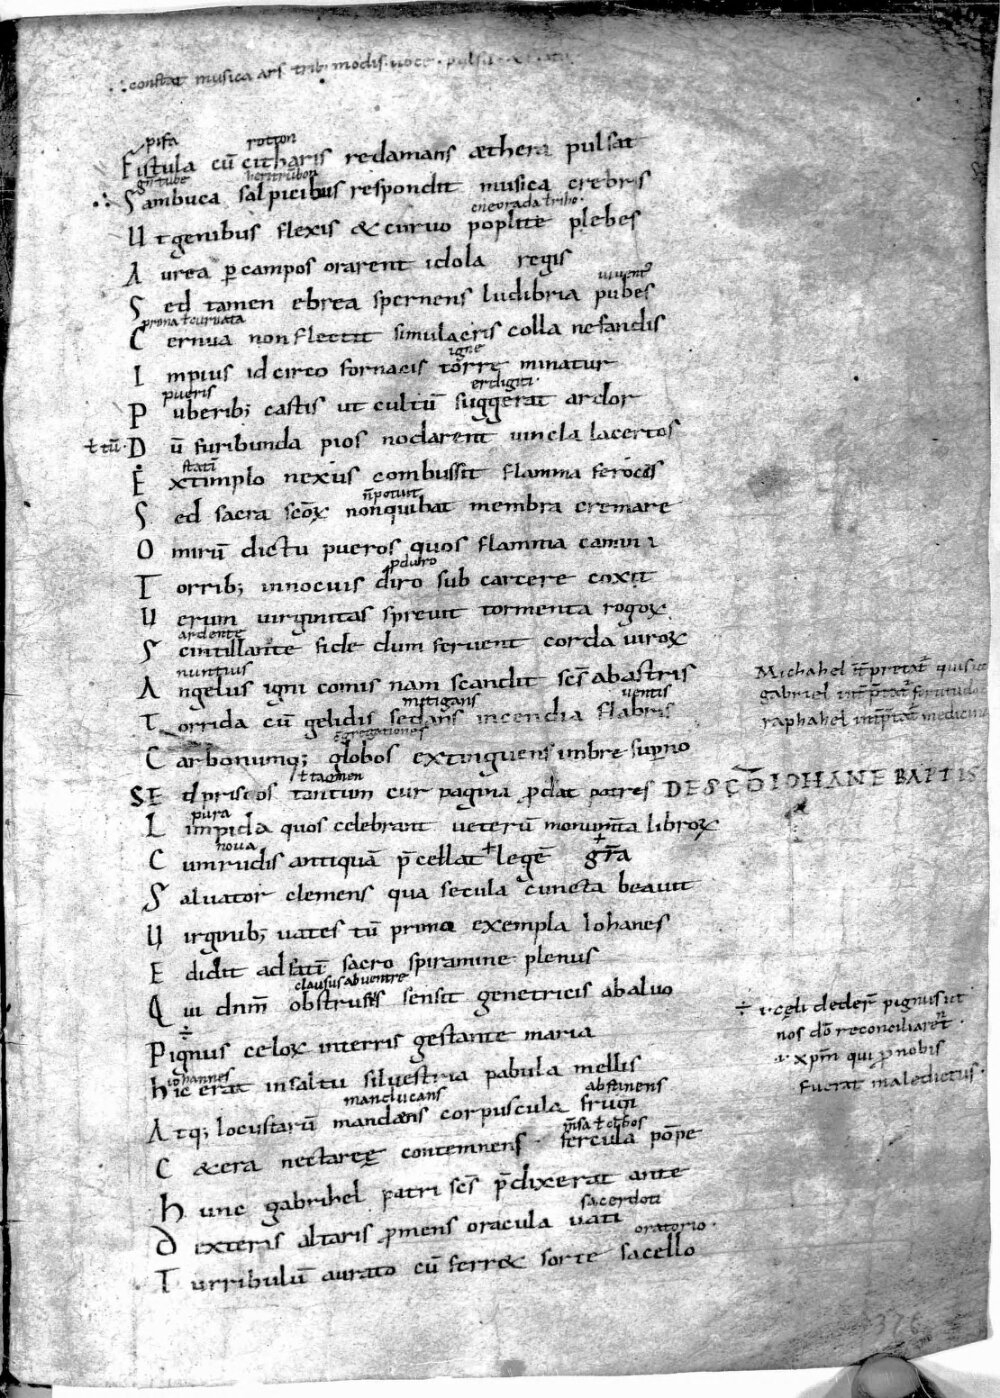 ∴ constat musica ars trib; modis. uoce. pulsu.
pifa rotton
Fistula cū citharis redamans æthera pulsat
heriтrūbon
∴ Sambuca salpicibus respondit musica crebris
Ut genibus flexis & curuo poplite plebes
Aurea ꝑ campos orarent idola regis
iuuent᷒
Sed tamen ebrea spernens ludibria pubes
prona ł curuata
Cernua non flectit simulacris colla nefandis
igne
Impius idcirco fornacis torre minatur
pueris
Puberib; castis ut cultū suggerat ardor
ł tū. Dū furibunda pios nodarent uincla lacertos
statī
Extimplo nexus combussit flamma feroces
n̄ potuit
Sed sacra scōꝝ non quibat membra cremare
O mirū dictu pueros quos flamma camini
ꝑ duro
Torrib; innocuis diro sub carcere coxit
Uerum uirginitas spreuit tormenta rogoꝝ
ardente
Scintillante fide dum feruent corda uiroꝝ
nuntius
Angelus igni comis nam scandit scs̄ ab astris
mitigans uentis
Torrida cū gelidis sedans incendia flabris
Carbonumq; globos extinguens imbre suꝑno
ł tamen
SEd priscos tantum cur pagina ꝓdat patres DE SC̄O IOHANE BAPTIS
pura
Limpida quos celebrant ueterū monumta libroꝝ
noua
Cum rudis antiquā p̄cellat legē gr̄a
Saluator clemens qua secula cuncta beauit
Uirginib; uates tū prima exempla Iohanes
Edidit ad fatū sacro spiramine plenus
clausus ab uentre
Qui dn̄m obstrusus sensit genetricis ab aluo
÷
Pignus celoꝝ in terris gestante maria
iohannes
Hic erat in saltu siluestria pabula mellis
manducans abstinens
Atq; locustarū mandens corpuscula frugi
C&era nectareę contemnens fercula pōpe
Hunc gabrihel patri scs̄ p̄dixerat ante
sacerdoti
Dexteris altaris ꝓmens oracula uati
oratorio.
Turribulū aurato cū ferr& sorte sacello
Michahel int̄pretat᷒ quis sic
gabriel int̄ptat᷒ fortitudo
raphahel int̄ptat᷒ medicina
÷ i. cęli deder̄ pignus ut
nos dō reconciliaret᷒.
.i. xp̄m qui ꝓ nobis
fuerat maledictus.
376